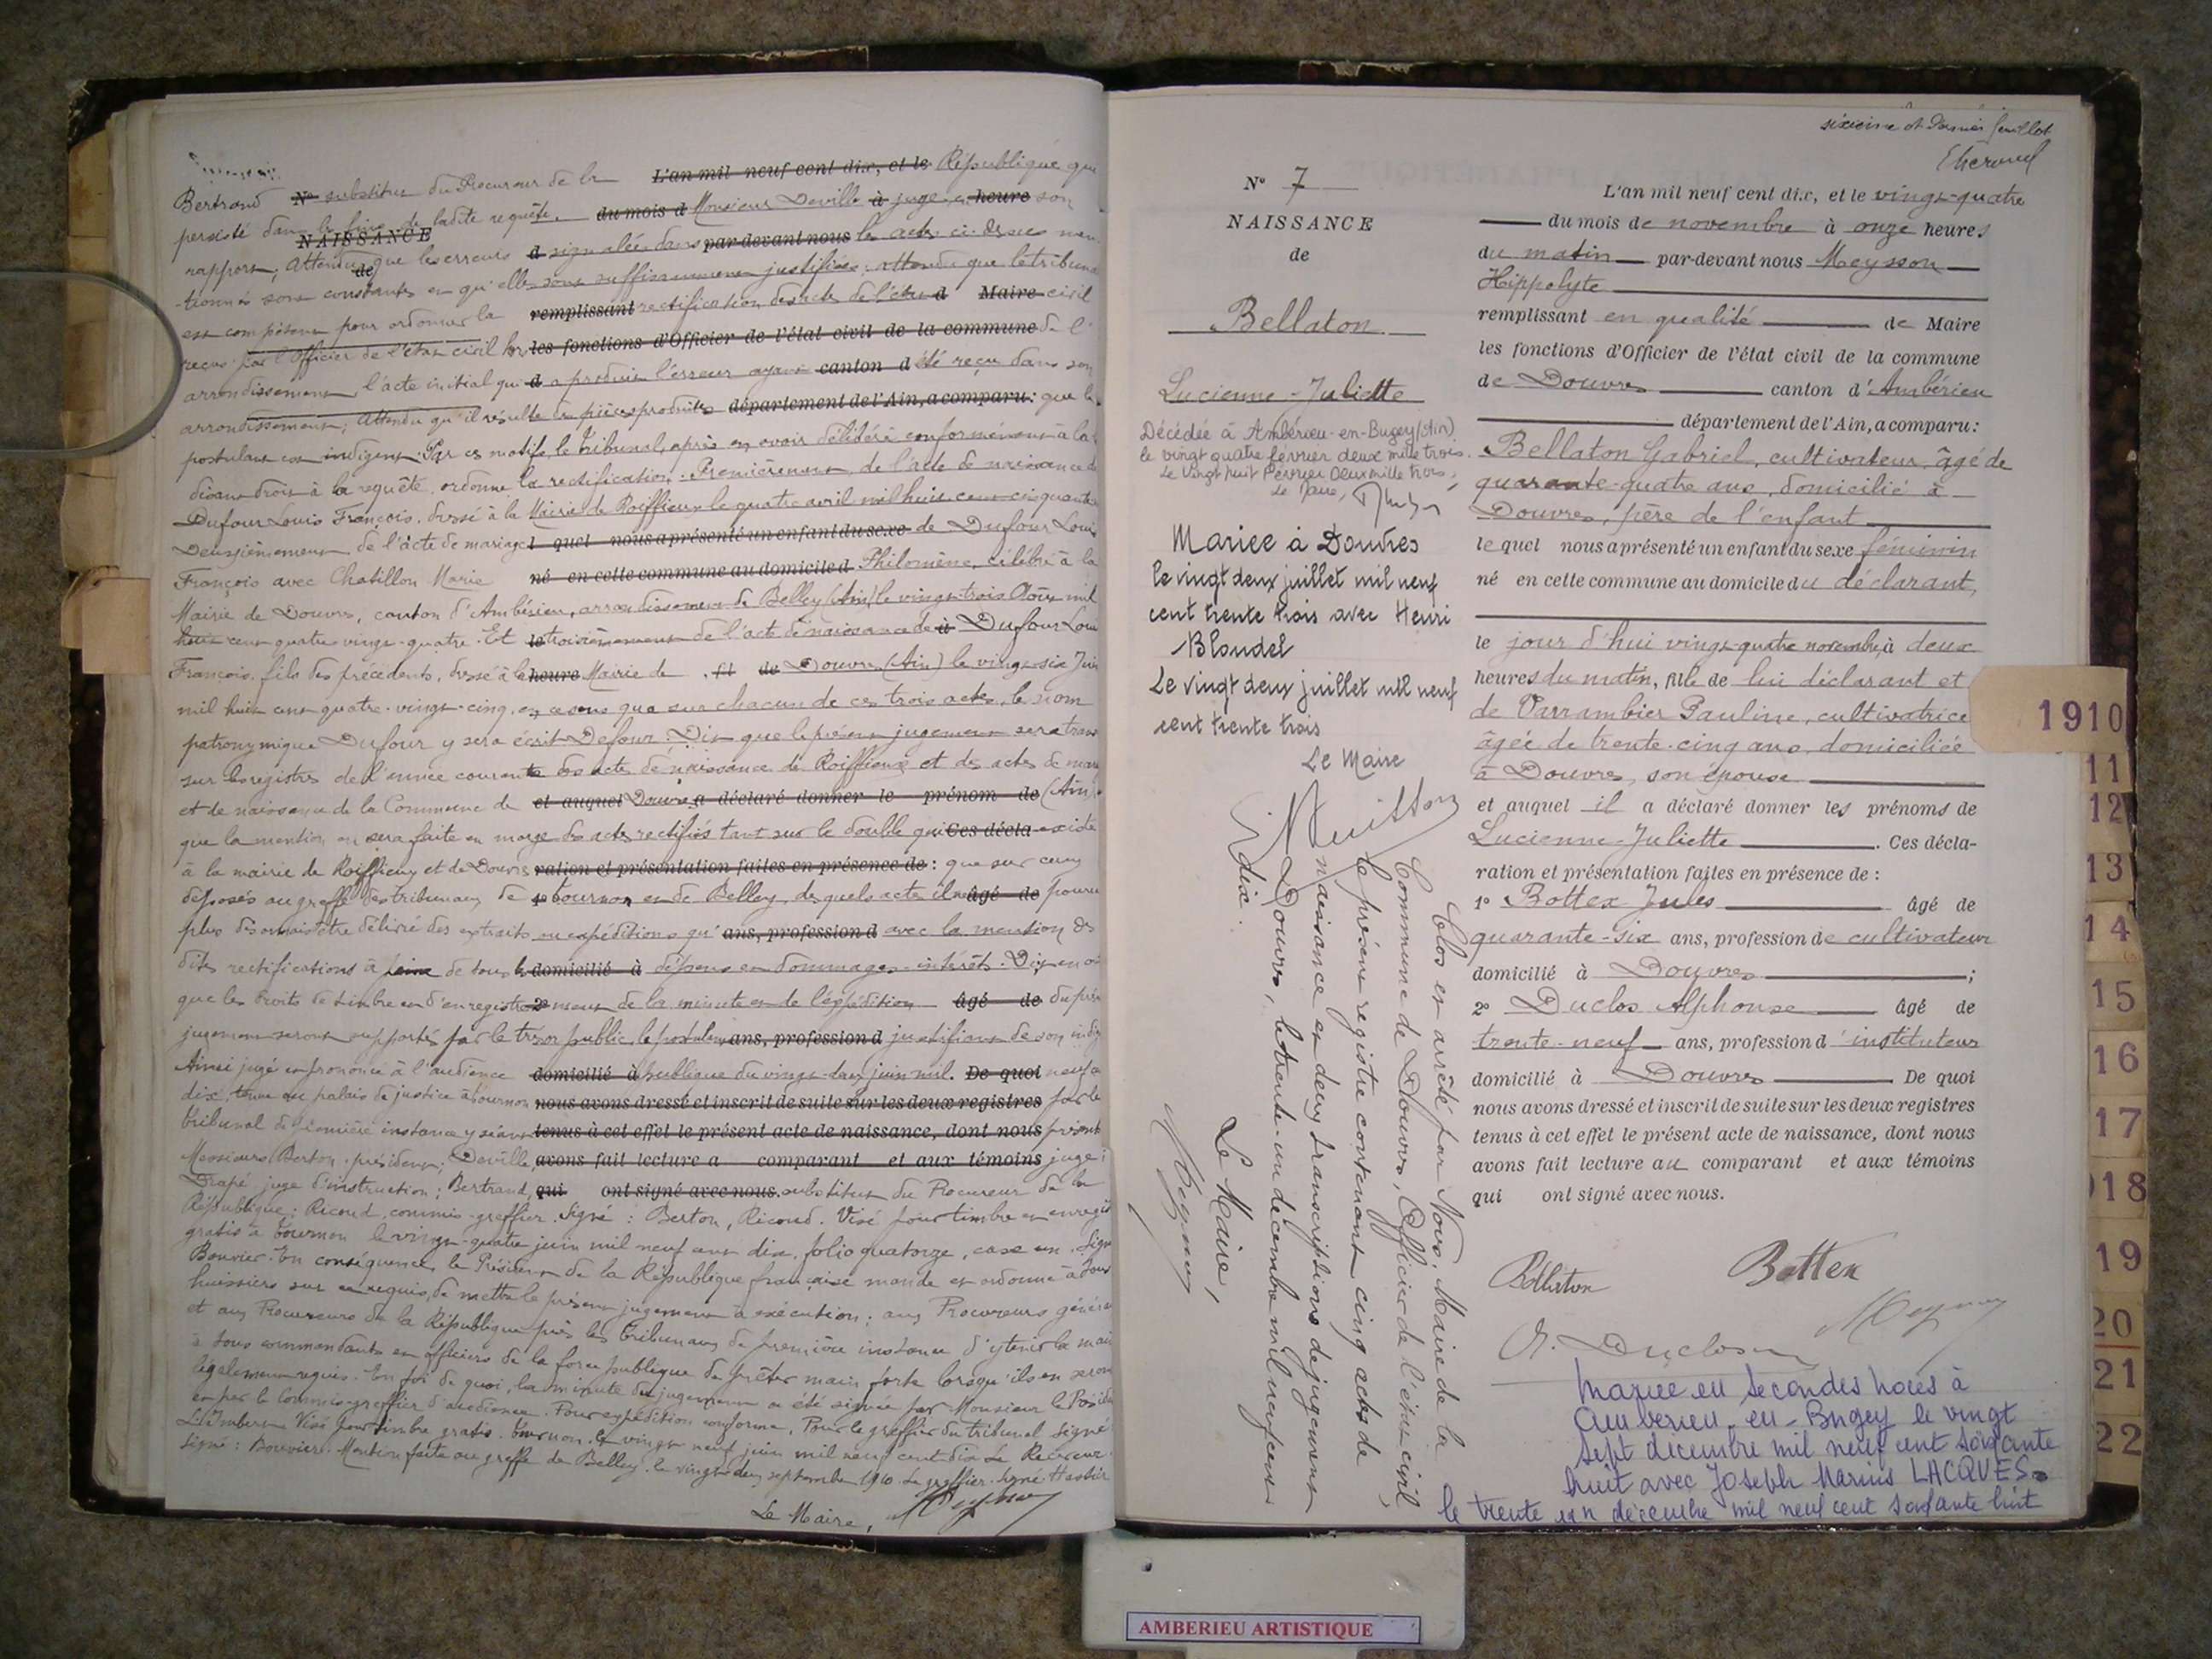 Bertrand N° substitut du Procureur de la L'an mil neuf cent dix, et le République qui
persisté dans les fins de ladite requête. du mois d Monsieur Deville à juge en heure son
NAISSANCE
rapport; Attendu que les erreurs d signalées dans par-devant nous les actes ci-dessus men
de
tionnés sont constantes et qu'elles sont suffisamment justifiées; attendu que le tribunal
est compétent pour ordonner la remplissant rectification des actes de l'état d Maire civil
reçus par l'Officier de l'état civil les fonctions d'Officier de l'état civil de la commune de l'
arrondissement l'acte initial qui d a produit l'erreur ayant canton d été reçu dans son
arrondissement; Attendu qu'il résulte des pièces produites département de l'Ain, a comparu: que le
postulant est indigent. Par ces motifs, le Tribunal, après en avoir délibéré conformément à la
disant droit à la requête, ordonne la rectification: Premièrement de l'acte de naissance de
Dufour Louis François, dressé à la Mairie de Roiffieux le quatre avril mil huit cent cinquante
Deuxièmement de l'acte de mariage l quel nous a présenté un enfant du sexe de Dufour Louis
François avec Chatillon Marie né en cette commune au domicile d Philomène, célébré à la
Mairie de Douvres, canton d'Ambérieu, arrondissement de Belley (Ain) le vingt-trois Août mil
huit cent quatre-vingt-quatre. Et le troisièmement de l'acte de naissance de à Dufour Louis
François, fils des précédents, dressé à la heure Mairie de . fil de Douvres (Ain) le vingt-six Juin
mil huit cent quatre-vingt-cinq, en ce sens que sur chacun de ces trois actes, le nom
patronymique Dufour y sera écrit Defour. Dit que le présent jugement sera trans
sur les registres de l'année courante des actes de naissance de Roiffieux et des actes de mari
et de naissance de la Commune de et auquel Douvres a déclaré donner le prénom de (Ain)
que la mention en sera faite en marge des actes rectifiés tant sur le double qui Ces décla- existe
à la mairie de Roiffieux et de Douvres ration et présentation faites en présence de : que sur ceux
déposés au greffe des tribunaux de 1° Tournon et de Belley, desquels actes il ne âgé de pourra
plus désormais être délivré des extraits ou expéditions qu' ans, profession d avec la mention des
dites rectifications à peine de tous domicilié à dépens et dommages-intérêts. Dit en outre
que les droits de timbre et d'enregistre 2° ment de la minute et de l'expédition âgé de du présent
jugement seront supportés par le trésor public, le postulant ans, profession d justifiant de son indig
Ainsi jugé et prononcé à l'audience domicilié à publique du vingt-deux juin mil. De quoi neuf cent
dix, tenue au palais de justice à Tournon nous avons dressé et inscrit de suite sur les deux registres par le
tribunal de première instance y séant tenus à cet effet le présent acte de naissance, dont nous présents
Messieurs Berton, président; Deville avons fait lecture a comparant et aux témoins juge;
Drapé juge d'instruction; Bertrand, qui ont signé avec nous. substitut du Procureur de la
République; Ricoud, commis-greffier. Signé: Berton, Ricoud. Visé pour timbre et enregis
gratis à Tournon le vingt-quatre juin mil neuf cent dix, folio quatorze, case un. Signé
Bouvier. En conséquence, le Président de la République française mande et ordonne à tous
huissiers sur ce requis, de mettre le présent jugement à exécution; aux Procureurs généraux
et aux Procureurs de la République près les Tribunaux de première instance d'y tenir la main
à tous commandants et officiers de la force publique de prêter main forte lorsqu'ils en seront
légalement requis. En foi de quoi, la minute du jugement a été signée par Monsieur le Président
et par le commis-greffier d'audience. Pour expédition conforme, Pour le greffier du tribunal signé
Visé pour timbre gratis. Tournon, le vingt neuf juin mil neuf cent dix Le Receveur
signé: Bouvier. Mention faite au greffe de Belley, le vingt-deux septembre 1910. Le greffier. signé
Le Maire,
sixième et dernier feuillet
N° 7
NAISSANCE
de
Bellaton
Lucienne-Juliette
Décédée à Ambérieu-en-Bugey (Ain)
le vingt quatre février deux mille trois.
Le Vingt huit Février deux mille trois,
Le Maire,
Mariée à Douvres
le vingt deux juillet mil neuf
cent trente trois avec Henri
Blondel
Le vingt deux juillet mil neuf
cent trente trois
Le Maire
L'an mil neuf cent dix, et le vingt-quatre
du mois de novembre à onze heures
du matin par-devant nous Meysson
Hippolyte
remplissant en qualité de Maire
les fonctions d'Officier de l'état civil de la commune
de Douvres canton d'Ambérieu
département de l'Ain, a comparu:
Bellaton Gabriel, cultivateur, âgé de
quarante-quatre ans, domicilié à
Douvres, père de l'enfant
lequel nous a présenté un enfant du sexe féminin
né en cette commune au domicile du déclarant,
le jour d'hui vingt-quatre novembre, à deux
heures du matin, fille de lui déclarant et
de Varrambier Pauline, cultivatrice
âgée de trente-cinq ans, domiciliée
à Douvres, son épouse
et auquel il a déclaré donner les prénoms de
Lucienne-Juliette . Ces décla-
ration et présentation faites en présence de :
1° Bottex Jules âgé de
quarante-six ans, profession de cultivateur
domicilié à Douvres ;
2° Duclos Alphonse âgé de
trente-neuf ans, profession d'instituteur
domicilié à Douvres De quoi
nous avons dressé et inscrit de suite sur les deux registres
tenus à cet effet le présent acte de naissance, dont nous
avons fait lecture au comparant et aux témoins
qui ont signé avec nous.
Bellaton Bottex
A. Duclos
Mariée en secondes noces à
Ambérieu-en-Bugey le vingt
sept décembre mil neuf cent soixante
huit avec Joseph Marius LACQUES.
le trente un décembre mil neuf cent soixante huit
Clos et arrêté par Nous, Maire de la
Commune de Douvres, Officier de l'état civil,
le présent registre contenant cinq actes de
naissance et deux transcriptions de jugements
à Douvres, le trente-un décembre mil neuf cent
dix.
Le Maire,
1910
11
12
13
14
15
16
17
18
19
20
21
22
AMBERIEU ARTISTIQUE